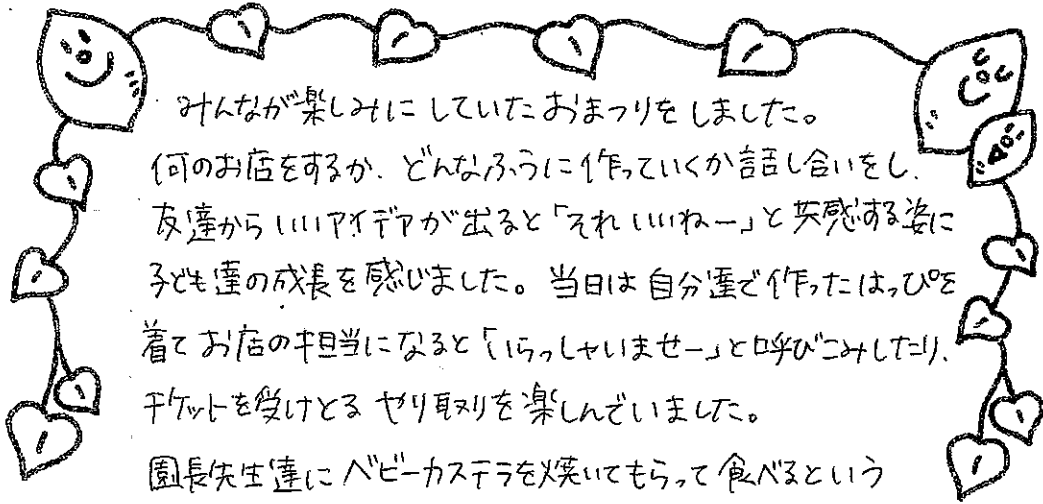 みんなが楽しみにしていたおまつりをしました。
何のお店をするか、どんなふうに作っていくか話し合いをし、
友達からいいアイデアが出ると「それいいねー」と共感する姿に
子ども達の成長を感じました。当日は自分達で作ったはっぴを
着てお店の担当になると「いらっしゃいませー」と呼びこみしたり、
チケットを受けとるやり取りを楽しんでいました。
園長先生達にベビーカステラを焼いてもらって食べるという